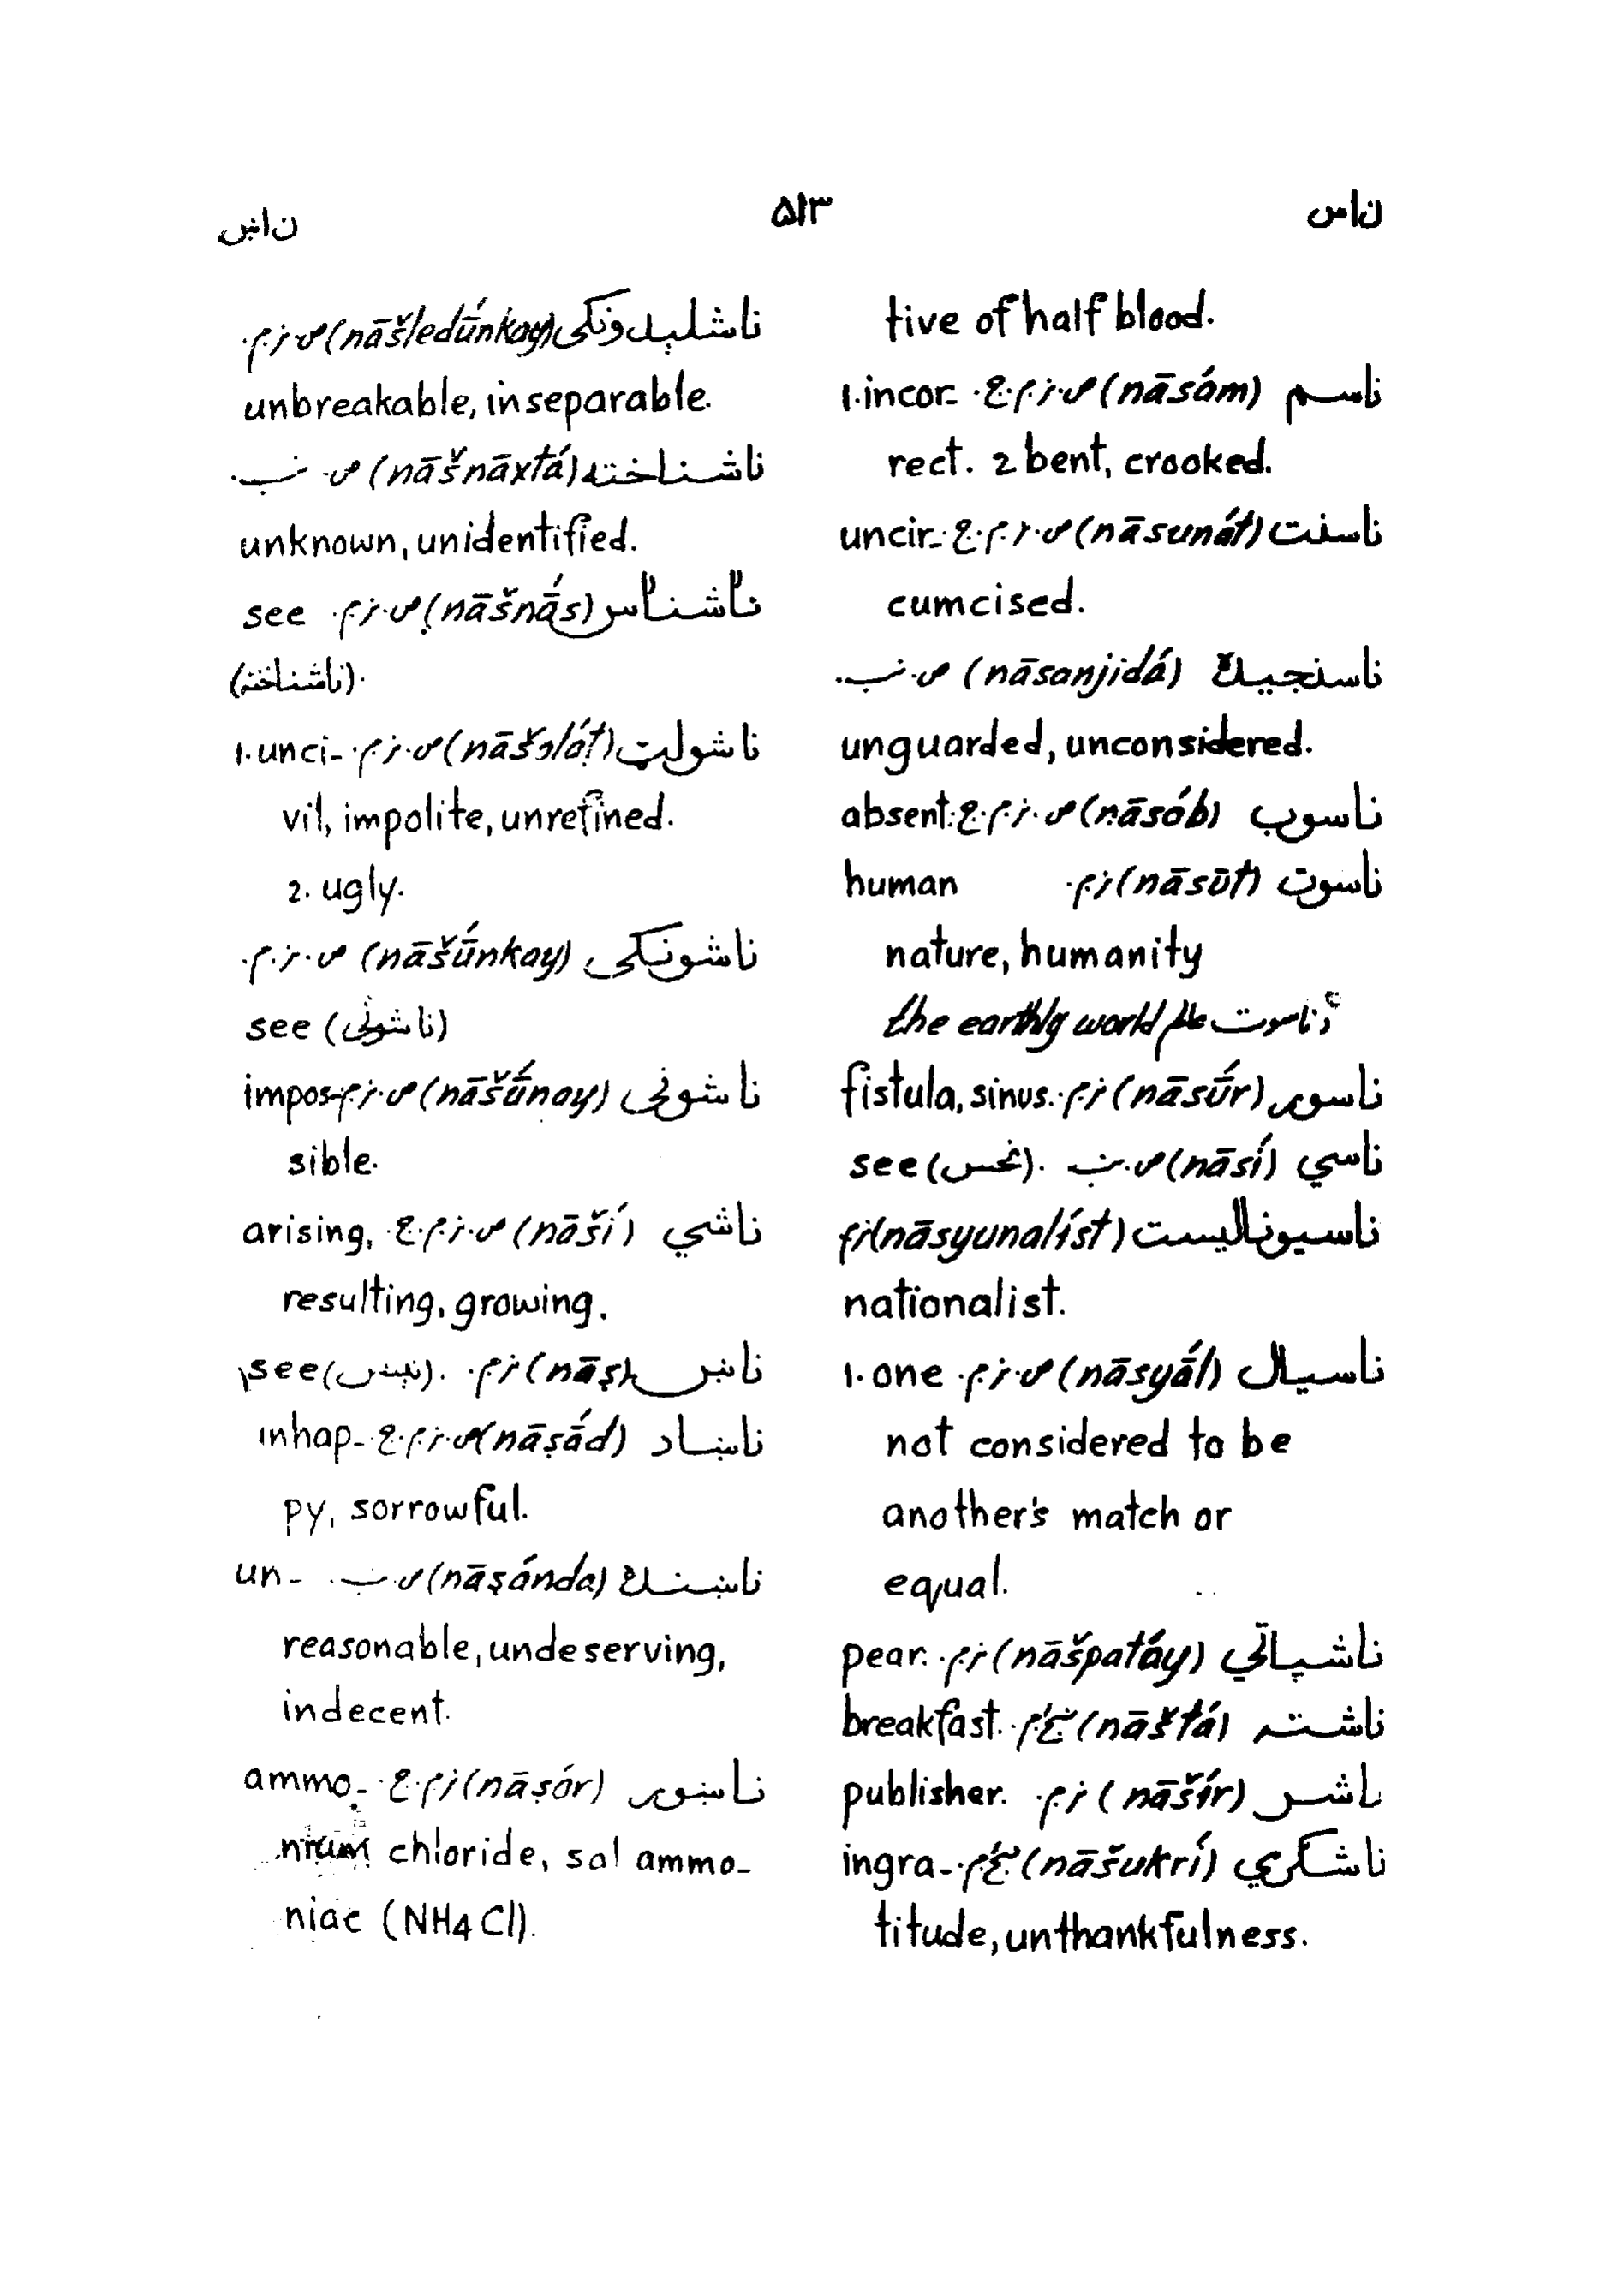 ناس
۵۱۳
ناښ
tive of half blood.
ناسم (nāsám) ص.ز.م.ج. 1.incor-
rect. 2 bent, crooked.
ناسنت (nāsunát) ص.ز.م.ج. uncir-
cumcised.
ناسنجيده (nāsanjidá) ص.ب.
unguarded, unconsidered.
ناسوب (nāsób) ص.ز.م.ج. absent.
ناسوت (nāsūt) ز.م. human
nature, humanity
the earthly world
ناسور (nāsū́r) ز.م. fistula, sinus.
ناسي (nāsí) ص. see (نحس).
ناسيوناليست (nāsyunalíst) ز.م
nationalist.
ناسيال (nāsyā́l) ص.ز.م. 1. one
not considered to be
another's match or
equal.
ناشپاتي (nāšpatáy) ز.م. pear.
ناشته (nāštá) breakfast.
ناشر (nāšír) ز.م. publisher.
ناشكري (nāšukrí) ingra-
titude, unthankfulness.
ناشليدونكى (nāšledū́nkay) ص.ز.م.
unbreakable, inseparable.
ناشناخته (nāšnāxtá) ص.
unknown, unidentified.
ناشناس (nāšnā́s) ص.ز.م. see
(ناشناخته).
ناشولټ (nāšəláṭ) ص.ز.م. 1. unci-
vil, impolite, unrefined.
2. ugly.
ناشونكى (nāšū́nkay) ص.ز.م.
see (ناشونى)
ناشونى (nāšū́nay) ص.ز.م. impos-
sible.
ناشي (nāší) ص.ز.م.ج. arising,
resulting, growing.
ناښ (nāṣ) ز.م. see
ناښاد (nāṣā́d) ص.ز.م.ج. unhap-
py, sorrowful.
ناښنده (nāṣánda) ص.ب. un-
reasonable, undeserving,
indecent.
ناښور (nāṣór) ز.م.ج. ammo-
nium chloride, sal ammo-
niac (NH4Cl).